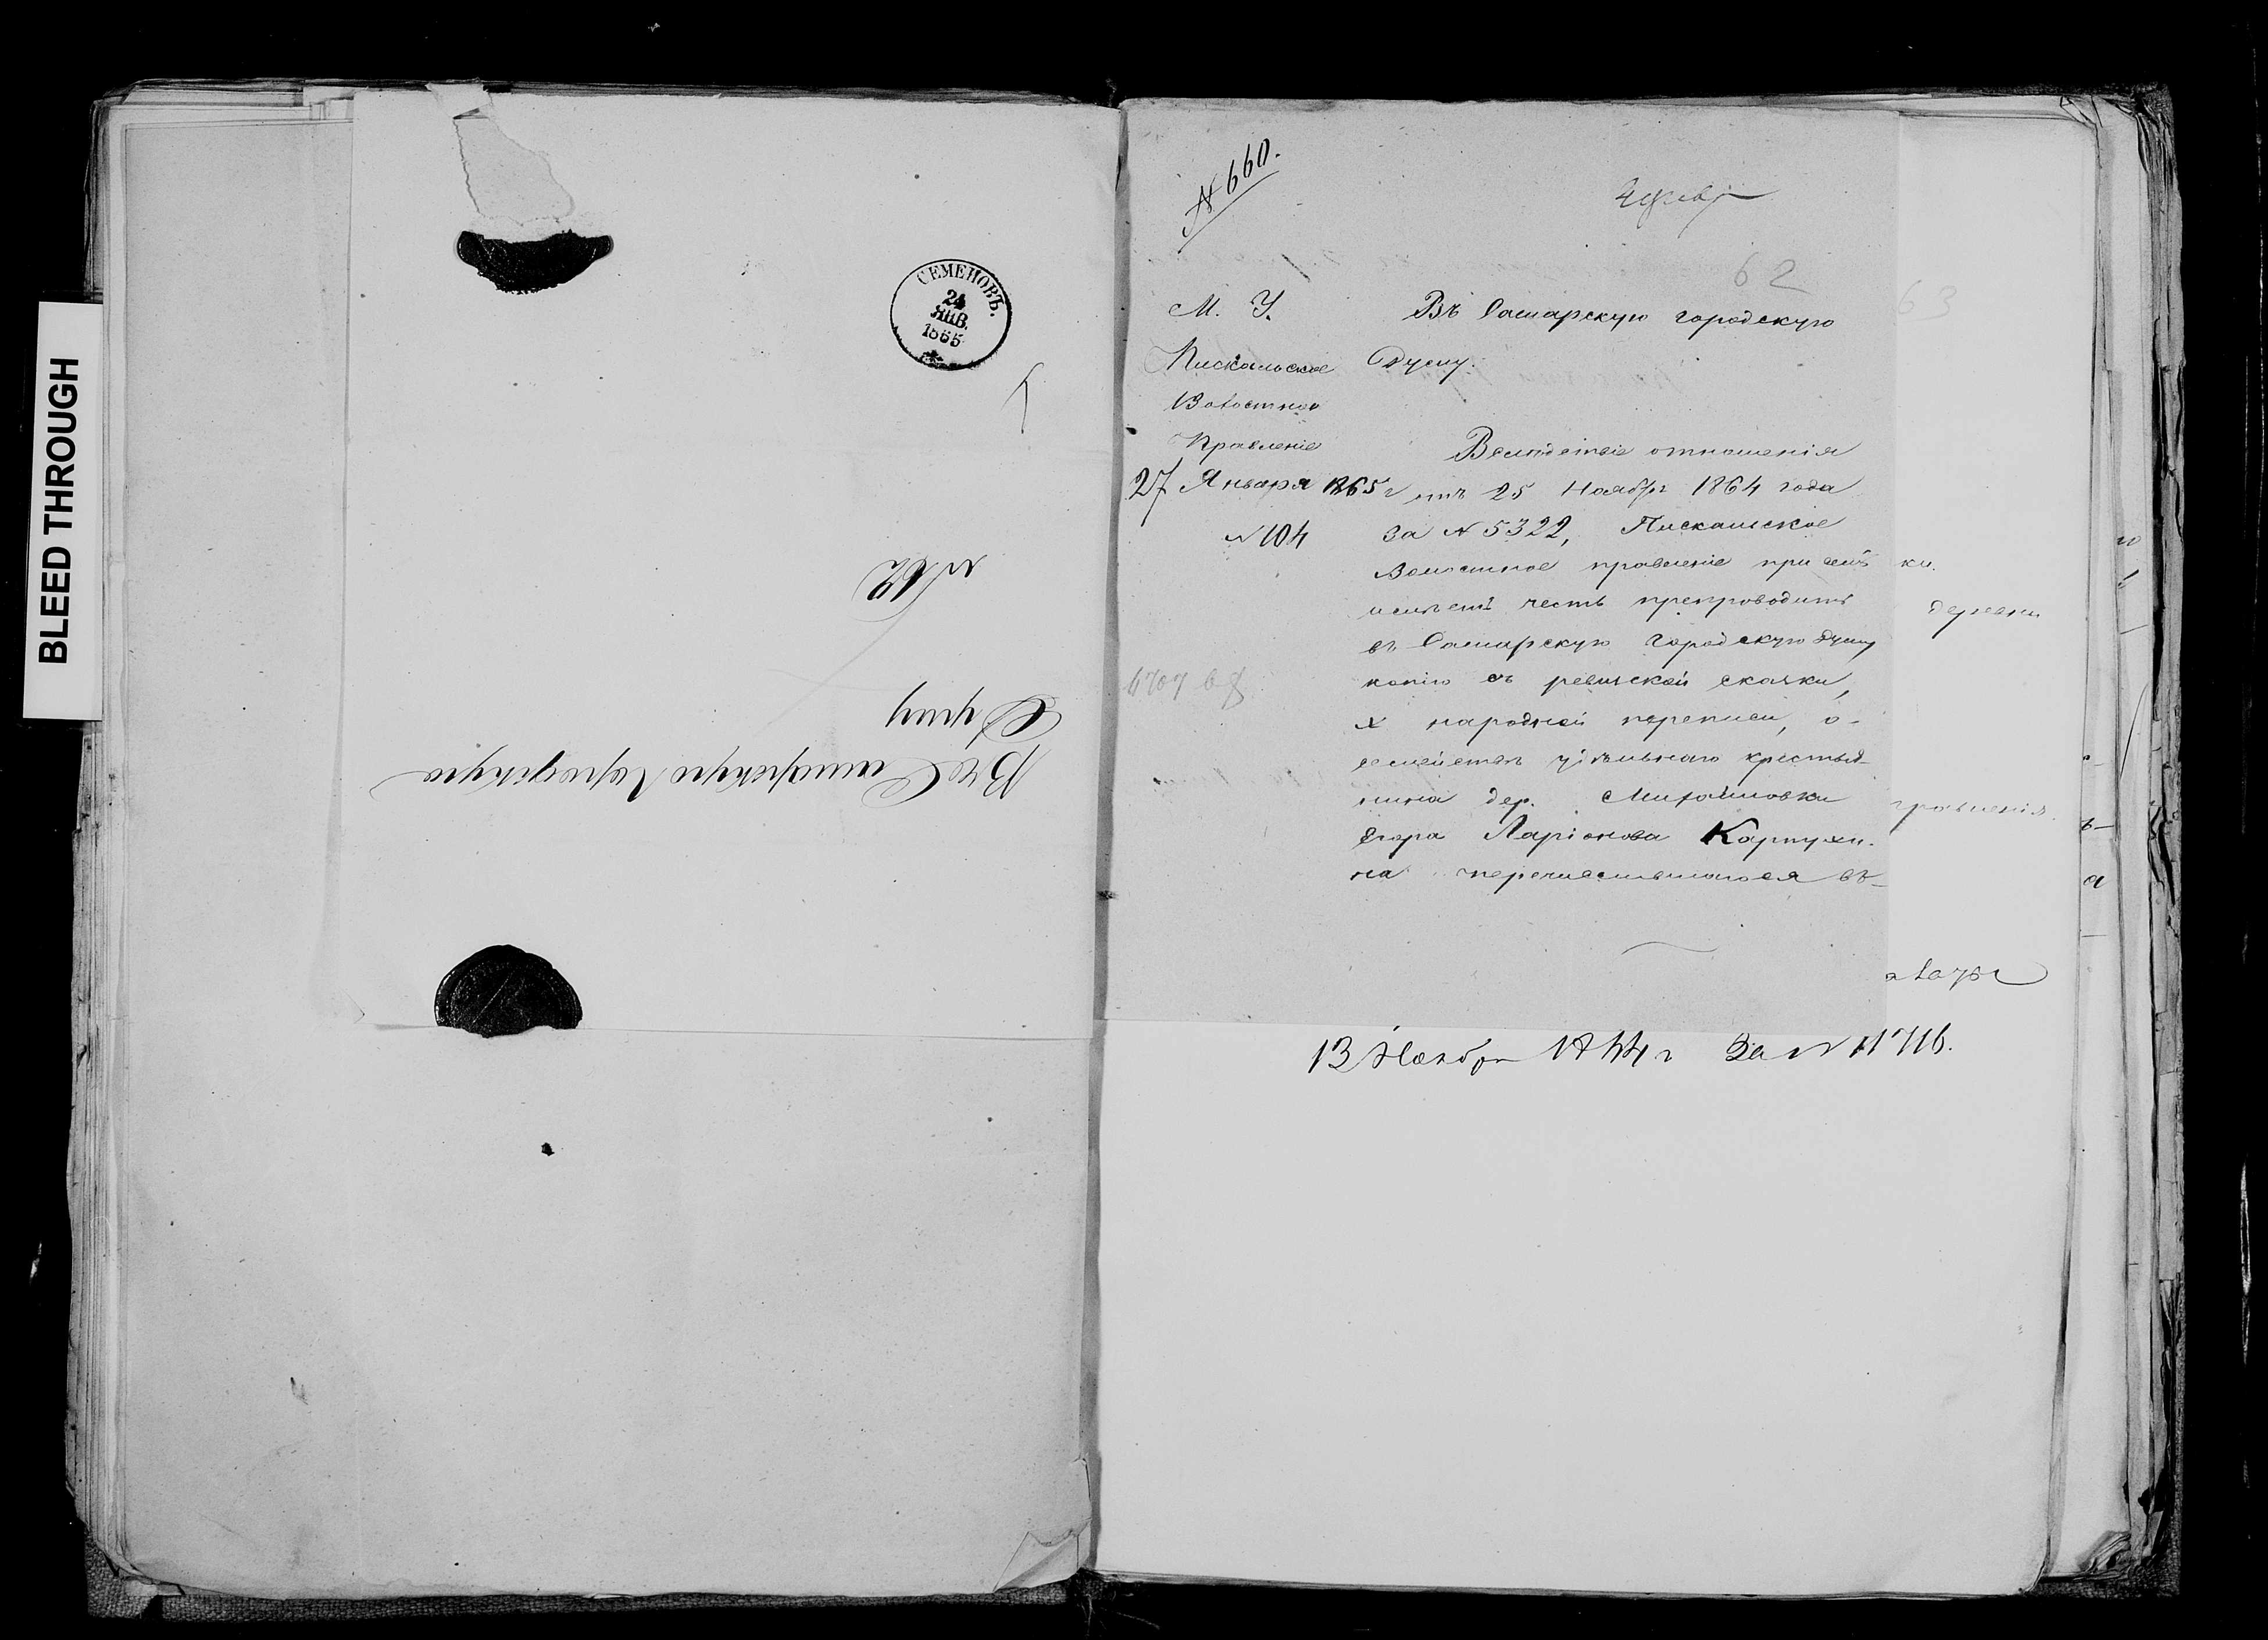 BLEED THROUGH
СЕМЕНОВЪ.
24
ЯНВ.
1865
№ 62
Въ Самарскую Городскую
Думу
№ 660.
4 февр
62
63
М. У.
Пискальское
Волостное
Правленіе
27 Января 1865 г
№ 104
4707
Въ Самарскую городскую
Думу.
Вслѣдствіе отношенія
отъ 25 Ноября 1864 года
за № 5322, Пискальское
Волостное правленіе при семъ
имѣетъ честь препроводить
въ Самарскую Городскую думу
копію съ ревизской сказки,
X народной переписи, о-
семействѣ удѣльнаго крестья-
нина дер. Михайловки
Егора Ларіонова Карпухи-
на перечислившагося въ-
ки.
деревни
правленія.
13 Ноября 1844 г За № 11716.